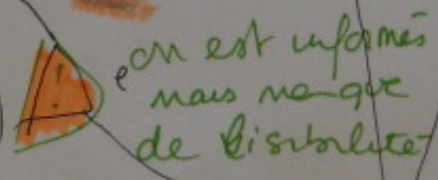 ! on est informés
mais manque
de lisibilité